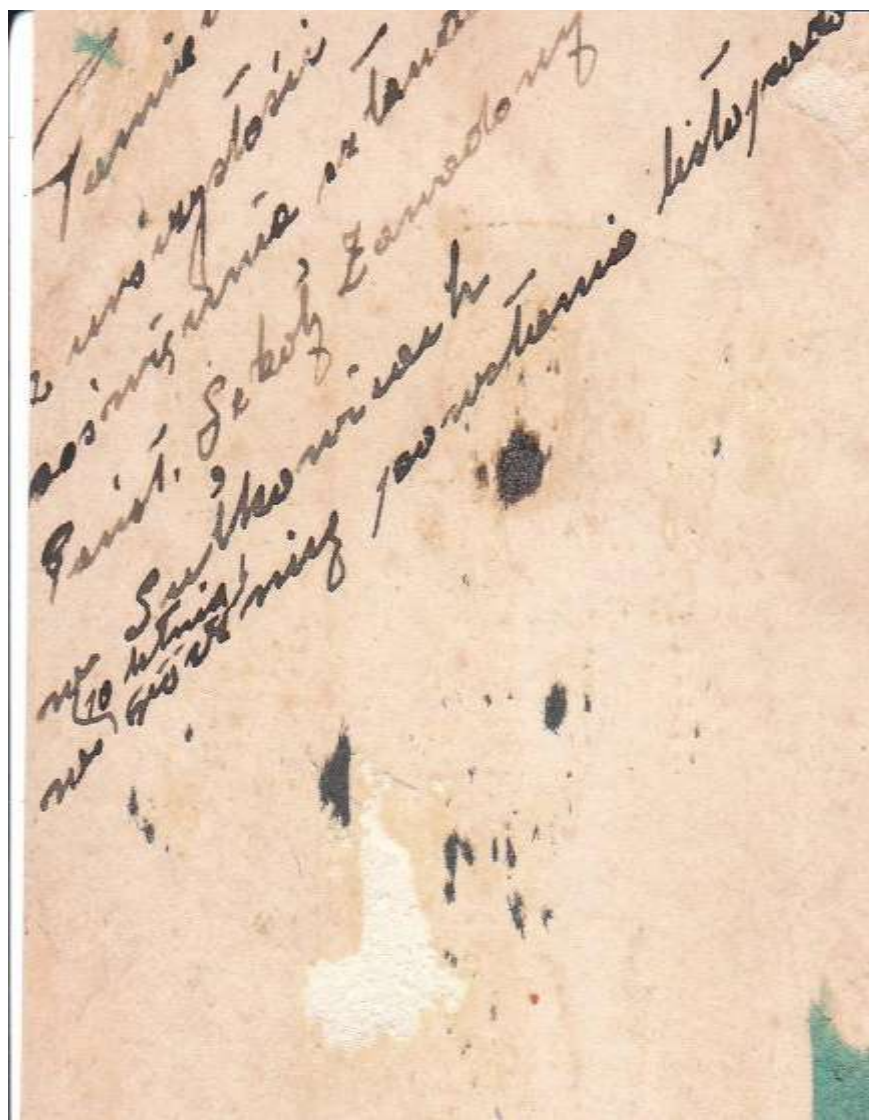 z uroczystości
poświęcenia sztand
Państ. Szkoły Zawodowy
w Sułkowicach
w 10 letnią
rocznicę powstania listopado